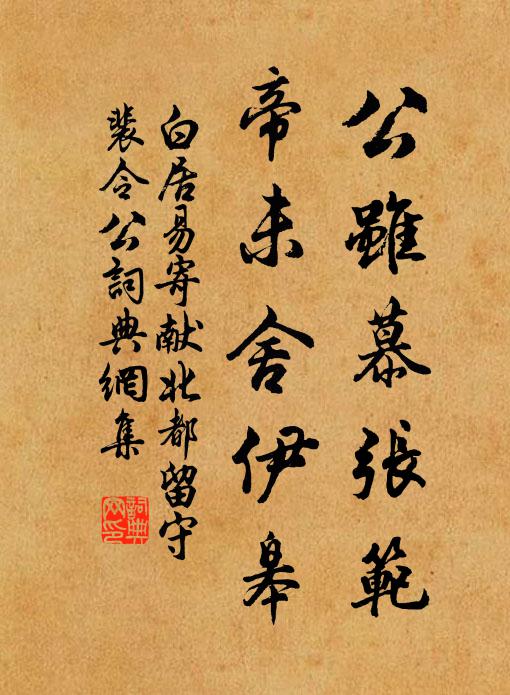 公雖慕張範
帝未舍伊皋
白居易寄献北都留守
裴令公詞典網集
詞典
网印